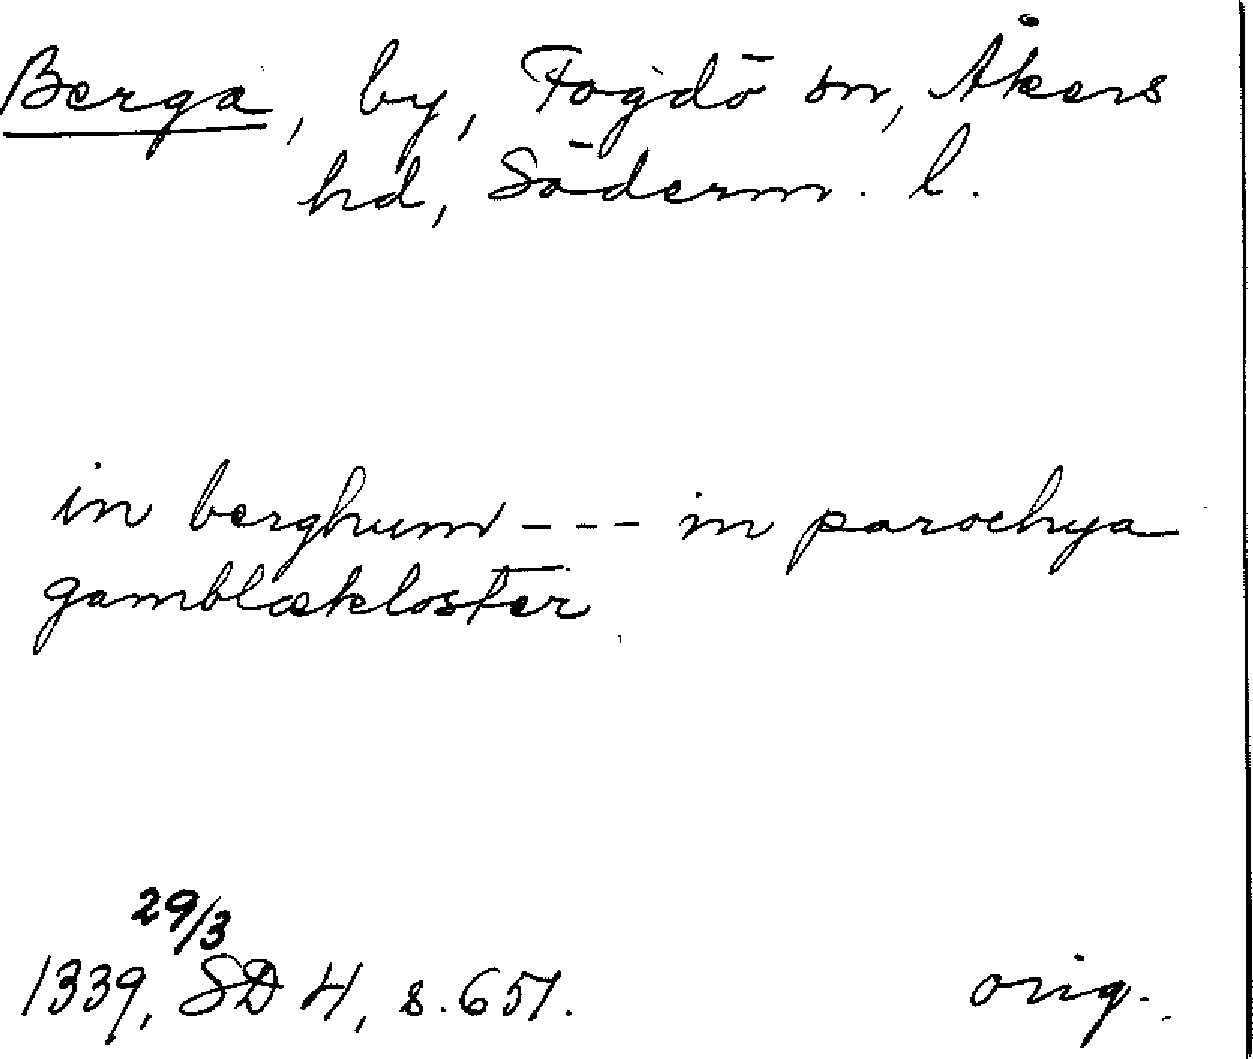 Berga, by, Fogdö sn, Åkers
hd, Söderm. l.
in berghum --- in parochya
gamblækloster
29/3
1339, SD 4, s. 651. orig.